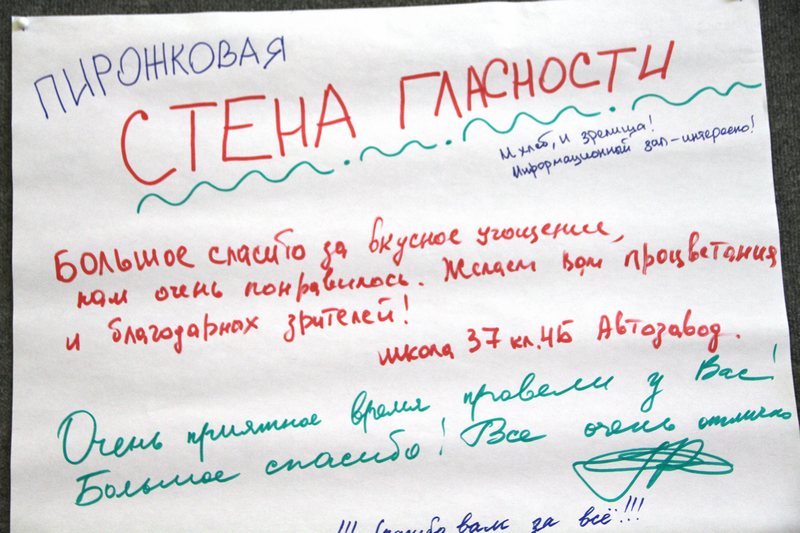 ПИРОЖКОВАЯ
СТЕНА ГЛАСНОСТИ
И хлеб, и зрелища!
Информационный зал-интересно!
Большое спасибо за вкусное угощение,
нам очень понравилось. Желаем вам процветания
и благодарных зрителей!
школа 37 кл.4Б Автозавод.
Очень приятное время провели у Вас!
Большое спасибо! Все очень отлично
!!! Спасибо вам за всё!!!